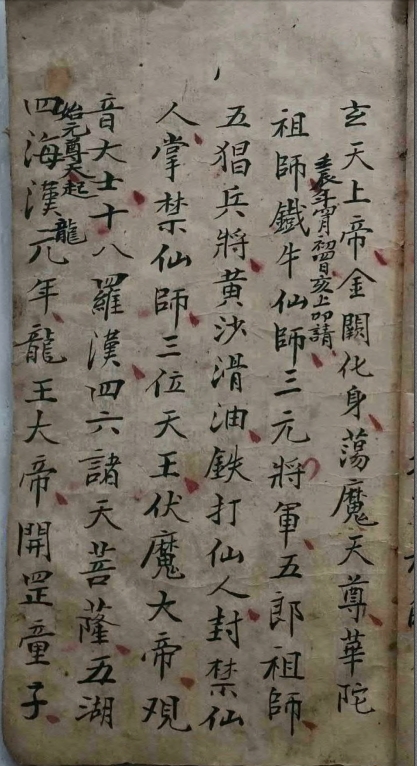 玄天上帝金闕化身蕩魔天尊華陀
祖師鐵牛仙師三元將軍五郎祖師
五猖兵將黄沙滑油鉄打仙人封禁仙
人掌禁仙師三位天王伏魔大帝观
音大士十八羅漢四六諸天菩薩五湖
始元尊天起龍
四海漢元年龍王大帝開罡童子